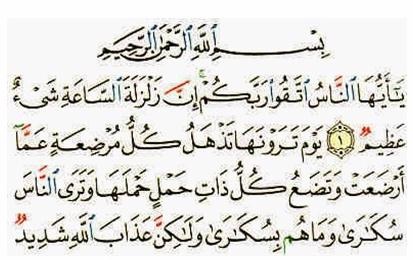 بِسْمِ ٱللَّهِ ٱلرَّحْمَٰنِ ٱلرَّحِيمِ
يَٰٓأَيُّهَا ٱلنَّاسُ ٱتَّقُوا۟ رَبَّكُمْ ۚ إِنَّ زَلْزَلَةَ ٱلسَّاعَةِ شَىْءٌ
عَظِيمٌ ١ يَوْمَ تَرَوْنَهَا تَذْهَلُ كُلُّ مُرْضِعَةٍ عَمَّآ
أَرْضَعَتْ وَتَضَعُ كُلُّ ذَاتِ حَمْلٍ حَمْلَهَا وَتَرَى ٱلنَّاسَ
سُكَٰرَىٰ وَمَا هُم بِسُكَٰرَىٰ وَلَٰكِنَّ عَذَابَ ٱللَّهِ شَدِيدٌ